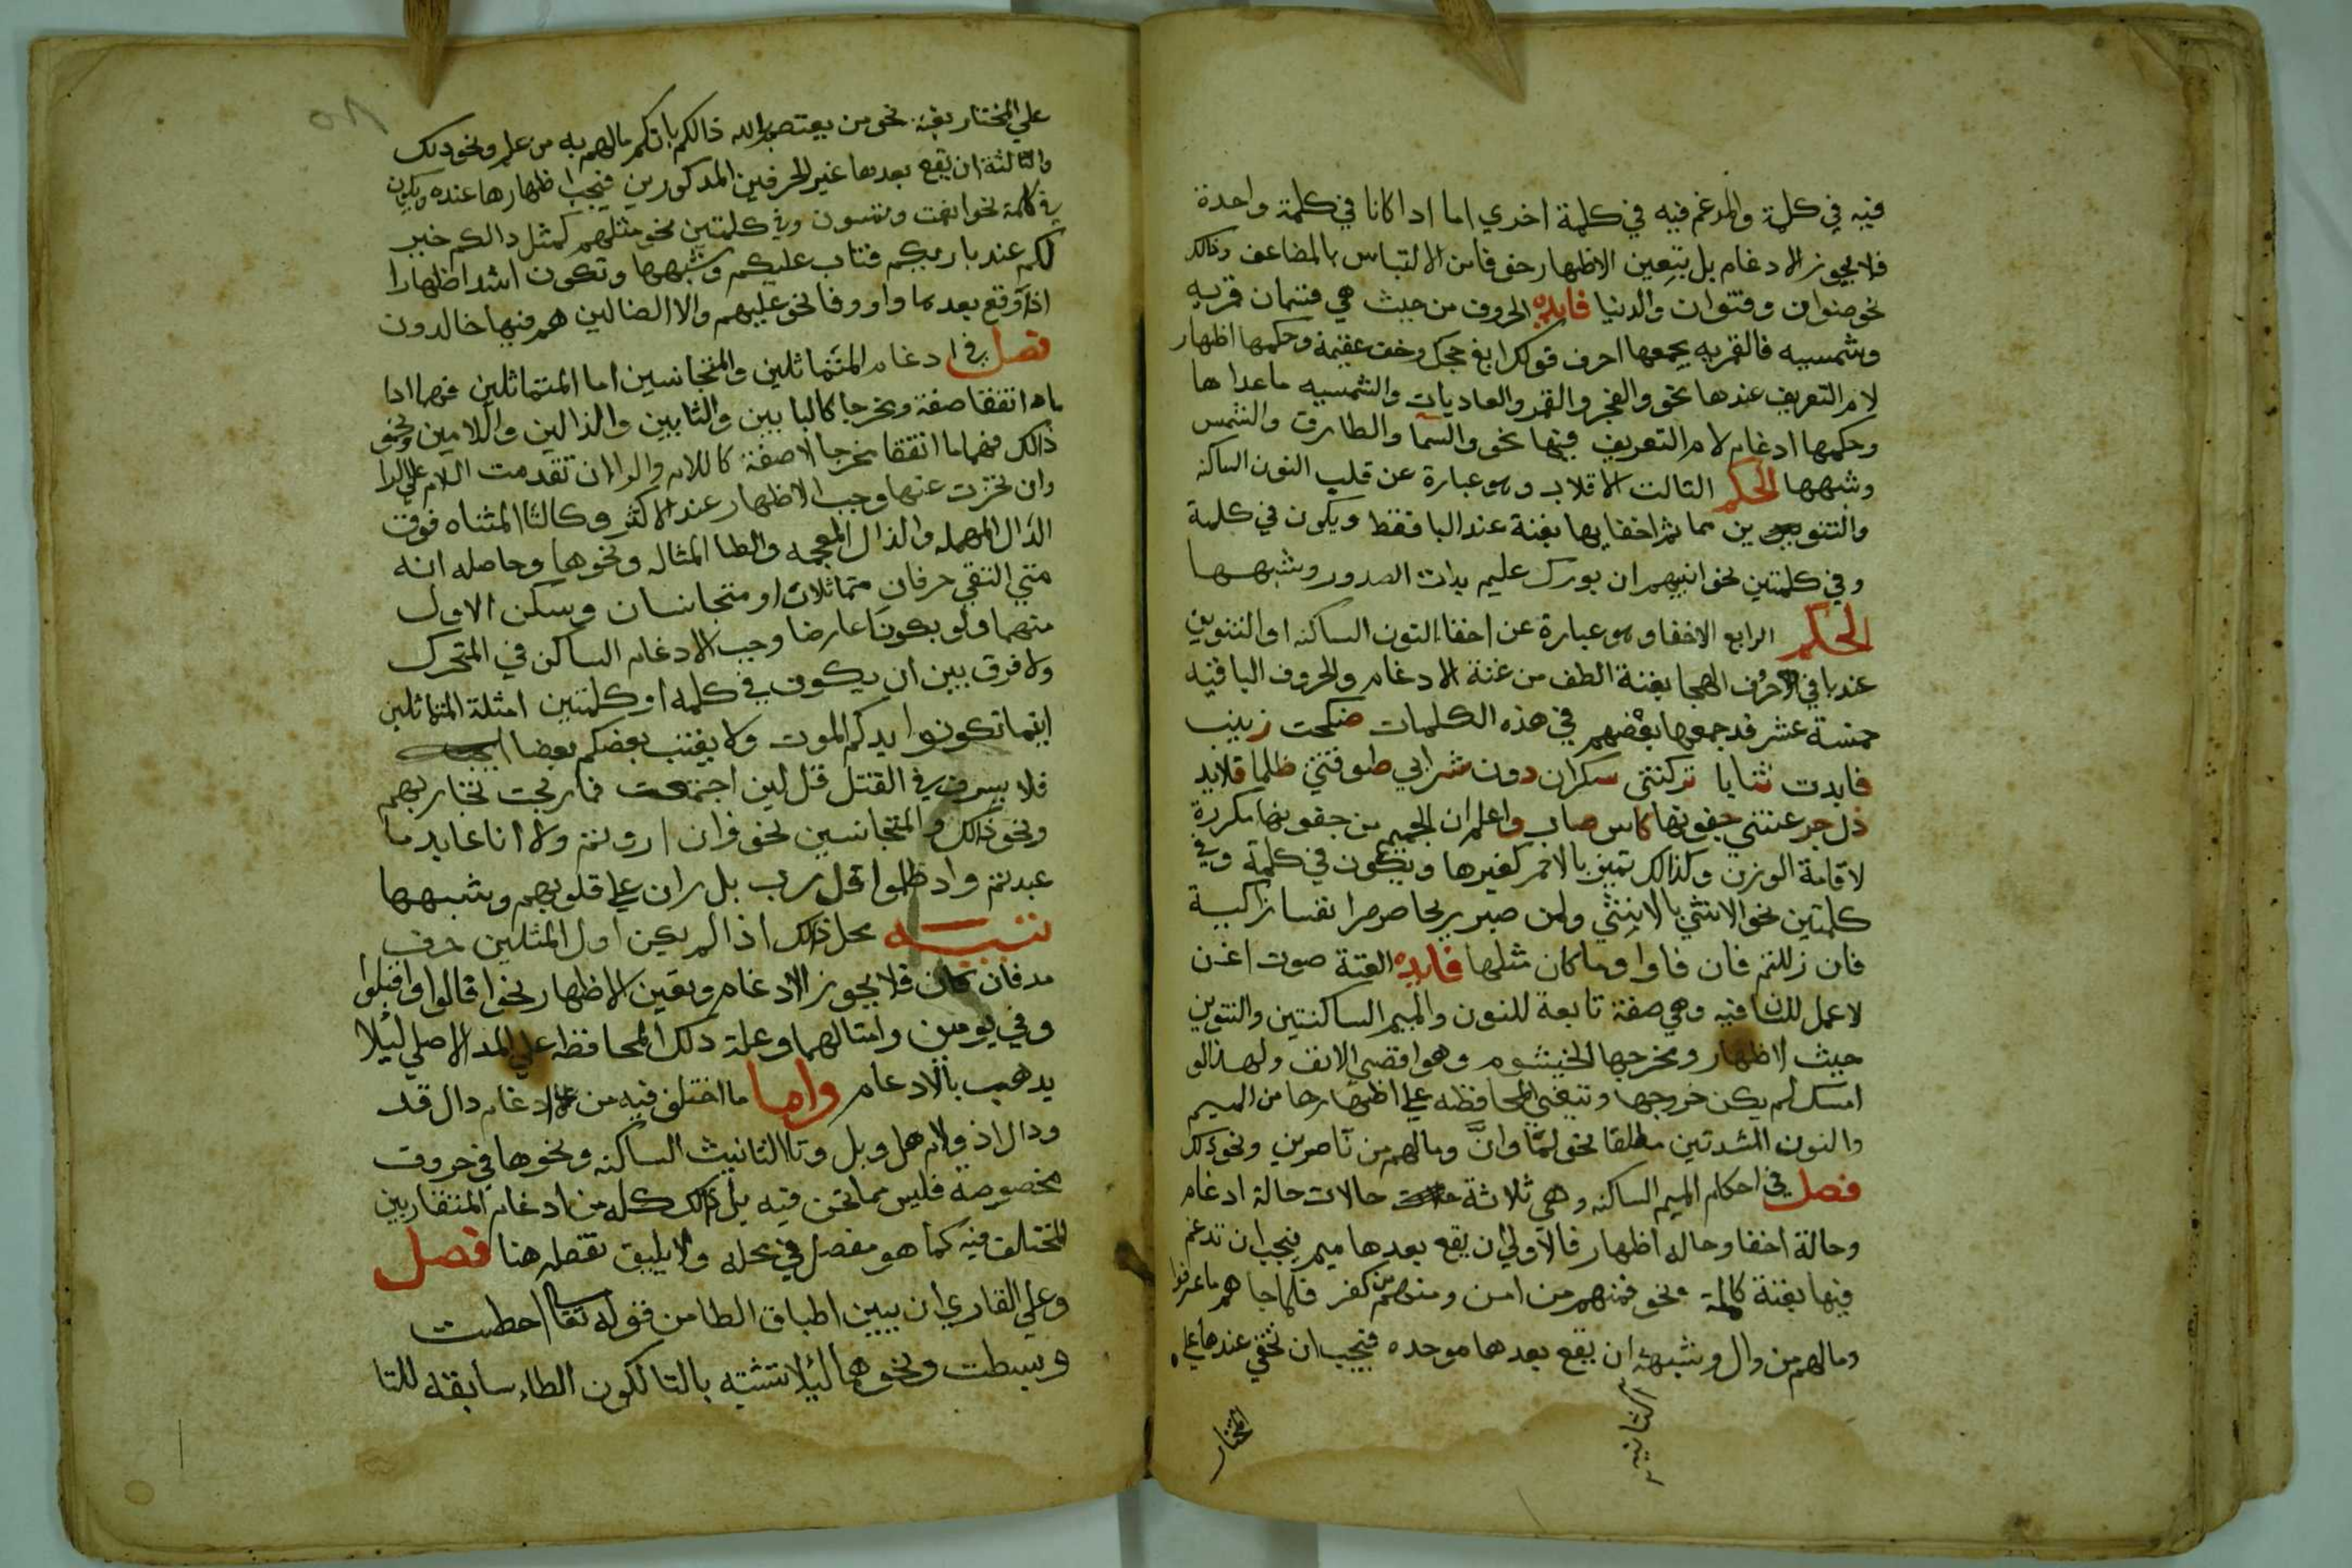 فيه في كلمة والمدغم فيه في كلمة اخري اما اذا كانا في كلمة واحدة
فلا يجوز الادغام بل يتعين الاظهار خوفا من الالتباس بالمضاعف وذالك
نحو صنوان وقنوان والدنيا فايده الحروف من حيث هي قسمان قمريه
وشمسيه فالقمريه يجمعها احرف قولك ابغ حجك وخف عقيمه وحكمها اظهار
لام التعريف عندها نحو والفجر والقمر والعاديات والشمسيه ماعداها
وحكمها ادغام لام التعريف فيها نحو والسما والطارق والشمس
وشبهها الحكم الثالث الاقلاب وهو عبارة عن قلب النون الساكنه
والتنوين مما ثم اخفايها بغنة عند البا فقط ويكون في كلمة
وفي كلمتين نحو انبيهم ان بورك عليم بذات الصدور وشبهها
الحكم الرابع الاخفا وهو عبارة عن اخفا النون الساكنه او التنوين
عند باقي احرف الهجا بغنة الطف من غنة الادغام والحروف الباقيه
خمسة عشر قد جمعها بعضهم في هذه الكلمات ضحكت زينب
فابدت ثنايا تركتني سكران دون شرابي طوقتني ظلما قلايد
ذل جرعتني جفونها كاس صاب واعلم ان الجيم من جفونها مكررة
لاقامة الوزن وكذالك تميز بالاحمر كغيرها ويكون في كلمة وفي
كلمتين نحو الانثي بالانثي ولمن صبر ريحا صرصرا نفسا زاكية
فان زللتم فان فاوا وما كان مثلها فايده الغنة صوت اغن
لا عمل للسان فيه وهي صفة تابعة للنون والميم الساكنتين والتنوين
حيث لا اظهار ومخرجها الخيشوم وهو اقصي الانف ولهذا لو
امسك لم يكن خروجها وتنبغي المحافظه علي اظهارها من الميم
والنون المشدتين مطلقا نحو لمّا وانّ ومالهم من ناصرين ونحو ذلك
فصل في احكام الميم الساكنه وهي ثلاثة حالات حالة ادغام
وحالة اخفا وحاله اظهار فالاولي ان يقع بعدها ميم فيجب ان تدغم
فيها بغنة كاملة نحو فمنهم من امن ومنهم من كفر فلما جاهم ما عرفوا
ومالهم من وال وشبهه ان يقع بعدها موحده فيجب ان تخفي عندها علي
الثانيه
المختار
علي المختار بغنة نحو من يعتصم بالله ذالكم بانكم مالهم به من علم ونحو ذلك
والثالثة ان يقع بعدها غير الحرفين المذكورين فيجب اظهارها عنده ويكون
في كلمة نحو انعمت وتمسون وفي كلمتين نحو مثلهم كمثل ذالكم خير
لكم عند باريكم فتاب عليكم وشبهها وتكون اشد اظهارا
اذا وقع بعدها واو وفا نحو عليهم ولا الضالين هم فيها خالدون
فصل في ادغام المتماثلين والمتجانسين اما المتماثلين فهما اذا
ما اتفقا صفة ومخرجا كالبايين والتايين والذالين واللامين ونحو
ذالك فهما ما اتفقا مخرجا لا صفة كاللام والرا ان تقدمت اللام علي الرا
وان تاخرت عنها وجب الاظهار عند الاكثر وكالتا المثناه فوق
الدال المهمله والذال المعجمه والظا المثاله ونحوها وحاصله انه
متي التقي حرفان متماثلان او متجانسان وسكن الاول
منهما ولو بكون عارضا وجب الادغام الساكن في المتحرك
ولا فرق بين ان يكون في كلمه او كلمتين امثلة المتماثلين
اينما تكونوا يدرككم الموت ولا يغتب بعضكم بعضا
فلا يسرف في القتل قل لين اجتمعت فما ربحت تجارتهم
ونحو ذالك والمتجانسين نحو فان اردتم ولا انا عابد ما
عبدتم واذ ظلموا قل رب بل ران علي قلوبهم وشبهها
تنبيه محل ذلك اذا لم يكن اول المثلين حرف
مد فان كان فلا يجوز الادغام وبقين الاظهار نحو قالوا واقبلوا
وفي يومين وامثالهما وعلة ذلك المحافظه علي المد الاصلي ليلا
يدهب بالادغام واما ما اختلف فيه من الادغام دال قد
وذال اذ ولام هل وبل وتا التانيث الساكنه ونحوها في حروف
مخصوصه فليس مما نحن فيه بل ذالك كله من ادغام المتقاربين
المختلف فيه كما هو مفصل في محله ولا يليق تفصله هنا فصل
وعلي القاري ان يبين اطباق الطا من قوله تعالي احطت
وبسطت ونحوهما ليلا تشتبه بالتا لكون الطاء سابقه للتا